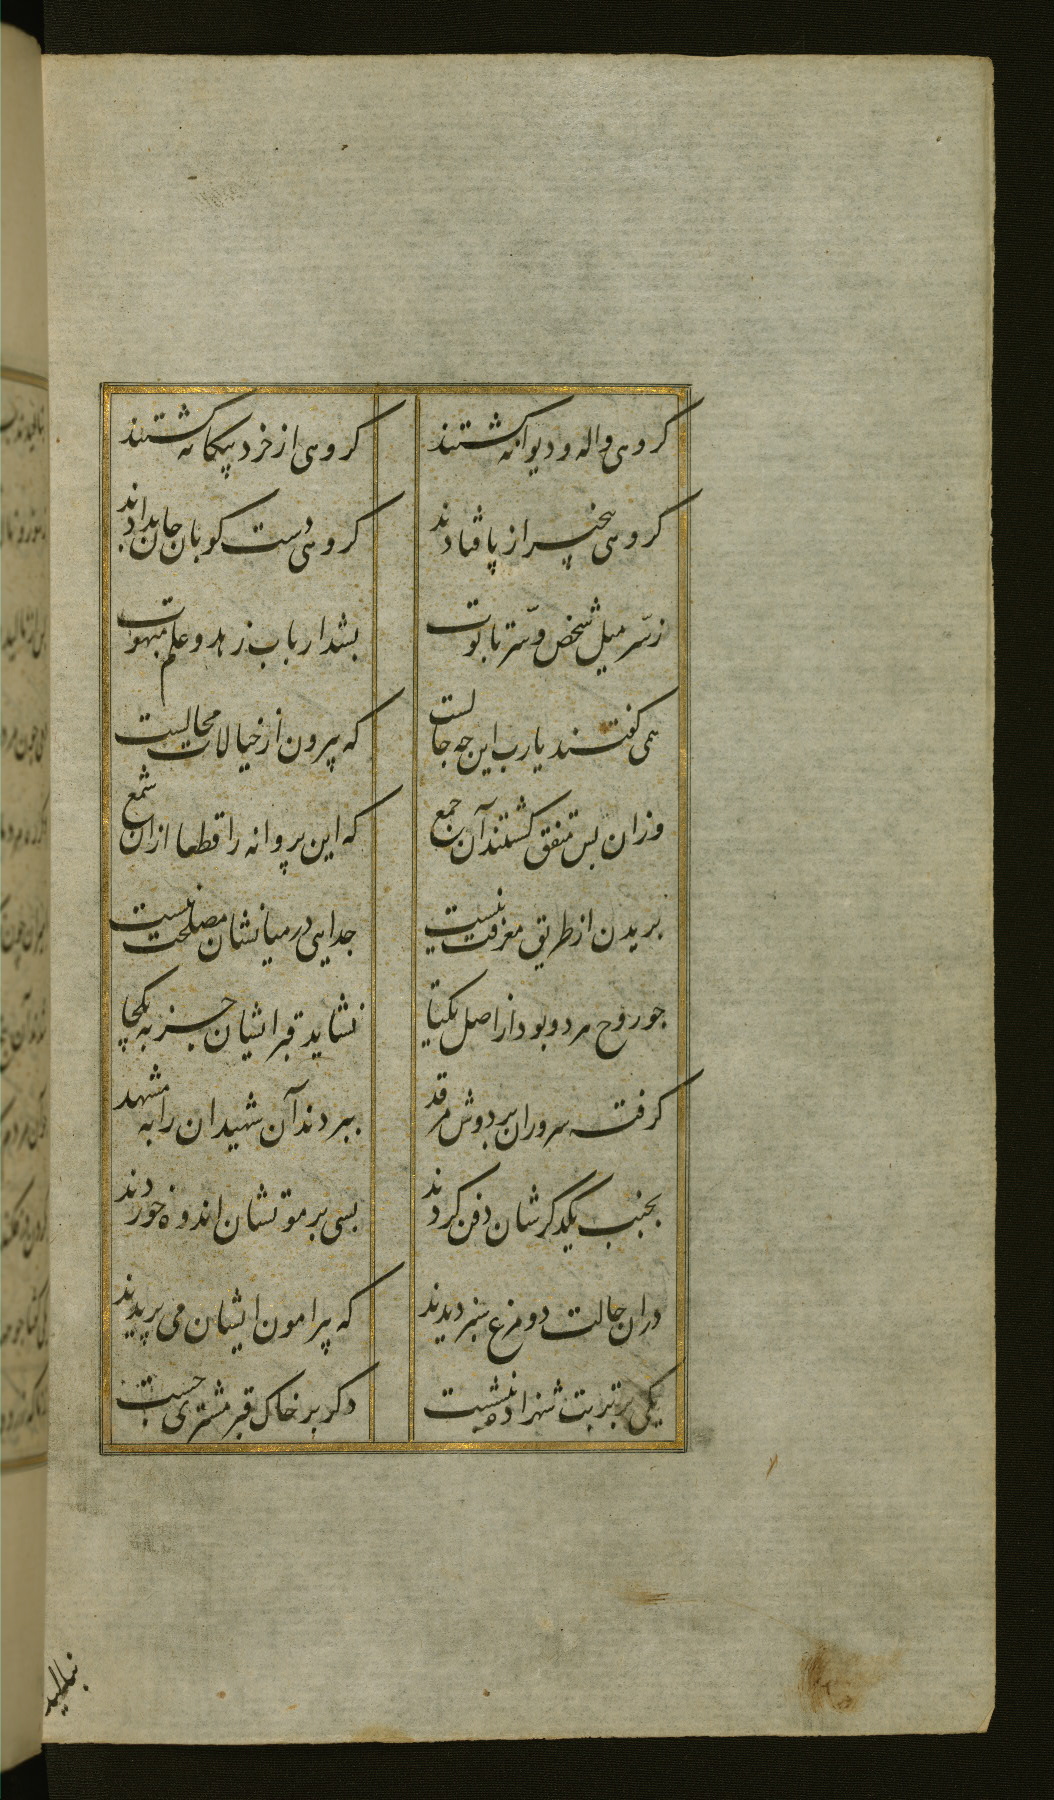 کروهی واله و دیوانه کشتند کروهی از خرد بیکانه کشتند
کروهی بیخبر از پا فتادند کروهی دست کوبان جان بدادند
ز سرّ میل شخص و سرّ تابوت بشد ارباب زهد و علم مبهوت
همی کفتند یارب این چه حالست که بیرون از خیالات محالیست
وزان پس متفق کشتند آن جمع که این پروانه را قطعا ازان شمع
بریدن از طریق معرفت نیست جدایی در میانشان مصلحت نیست
چو روح هر دو بود از اصل یکتا نشاید قبر ایشان جز به یکجا
کرفته سروران بر دوش مرقد ببردند آن شهیدان را به مشهد
بجنب یکدکرشان دفن کردند بسی بر موتشان اندوه خوردند
دران حالت دو مرغ سبز دیدند که پیرامون ایشان می پریدند
یکی بر تربت شهزاده بنشست دکر بر خاک قبر مشتری جست